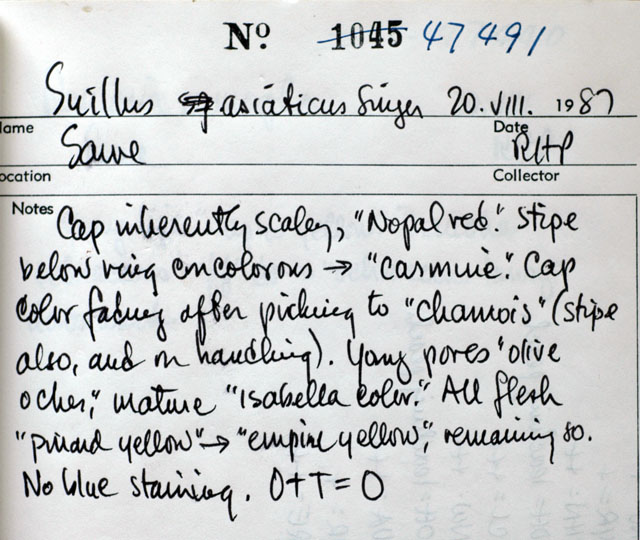 Nº 1045 47491
Suillus asiaticus Singer 20. VIII. 1987
Name Date
Same RHP
Location Collector
Notes Cap inherently scaley, "Nopal red." Stipe
below ring concolorous → "carmine". Cap
color fading after picking to "chamois" (stipe
also, and on handling). Young pores "olive
ocher," mature "Isabella color." All flesh
"pinard yellow" → "empire yellow," remaining so.
No blue staining. O+T=O